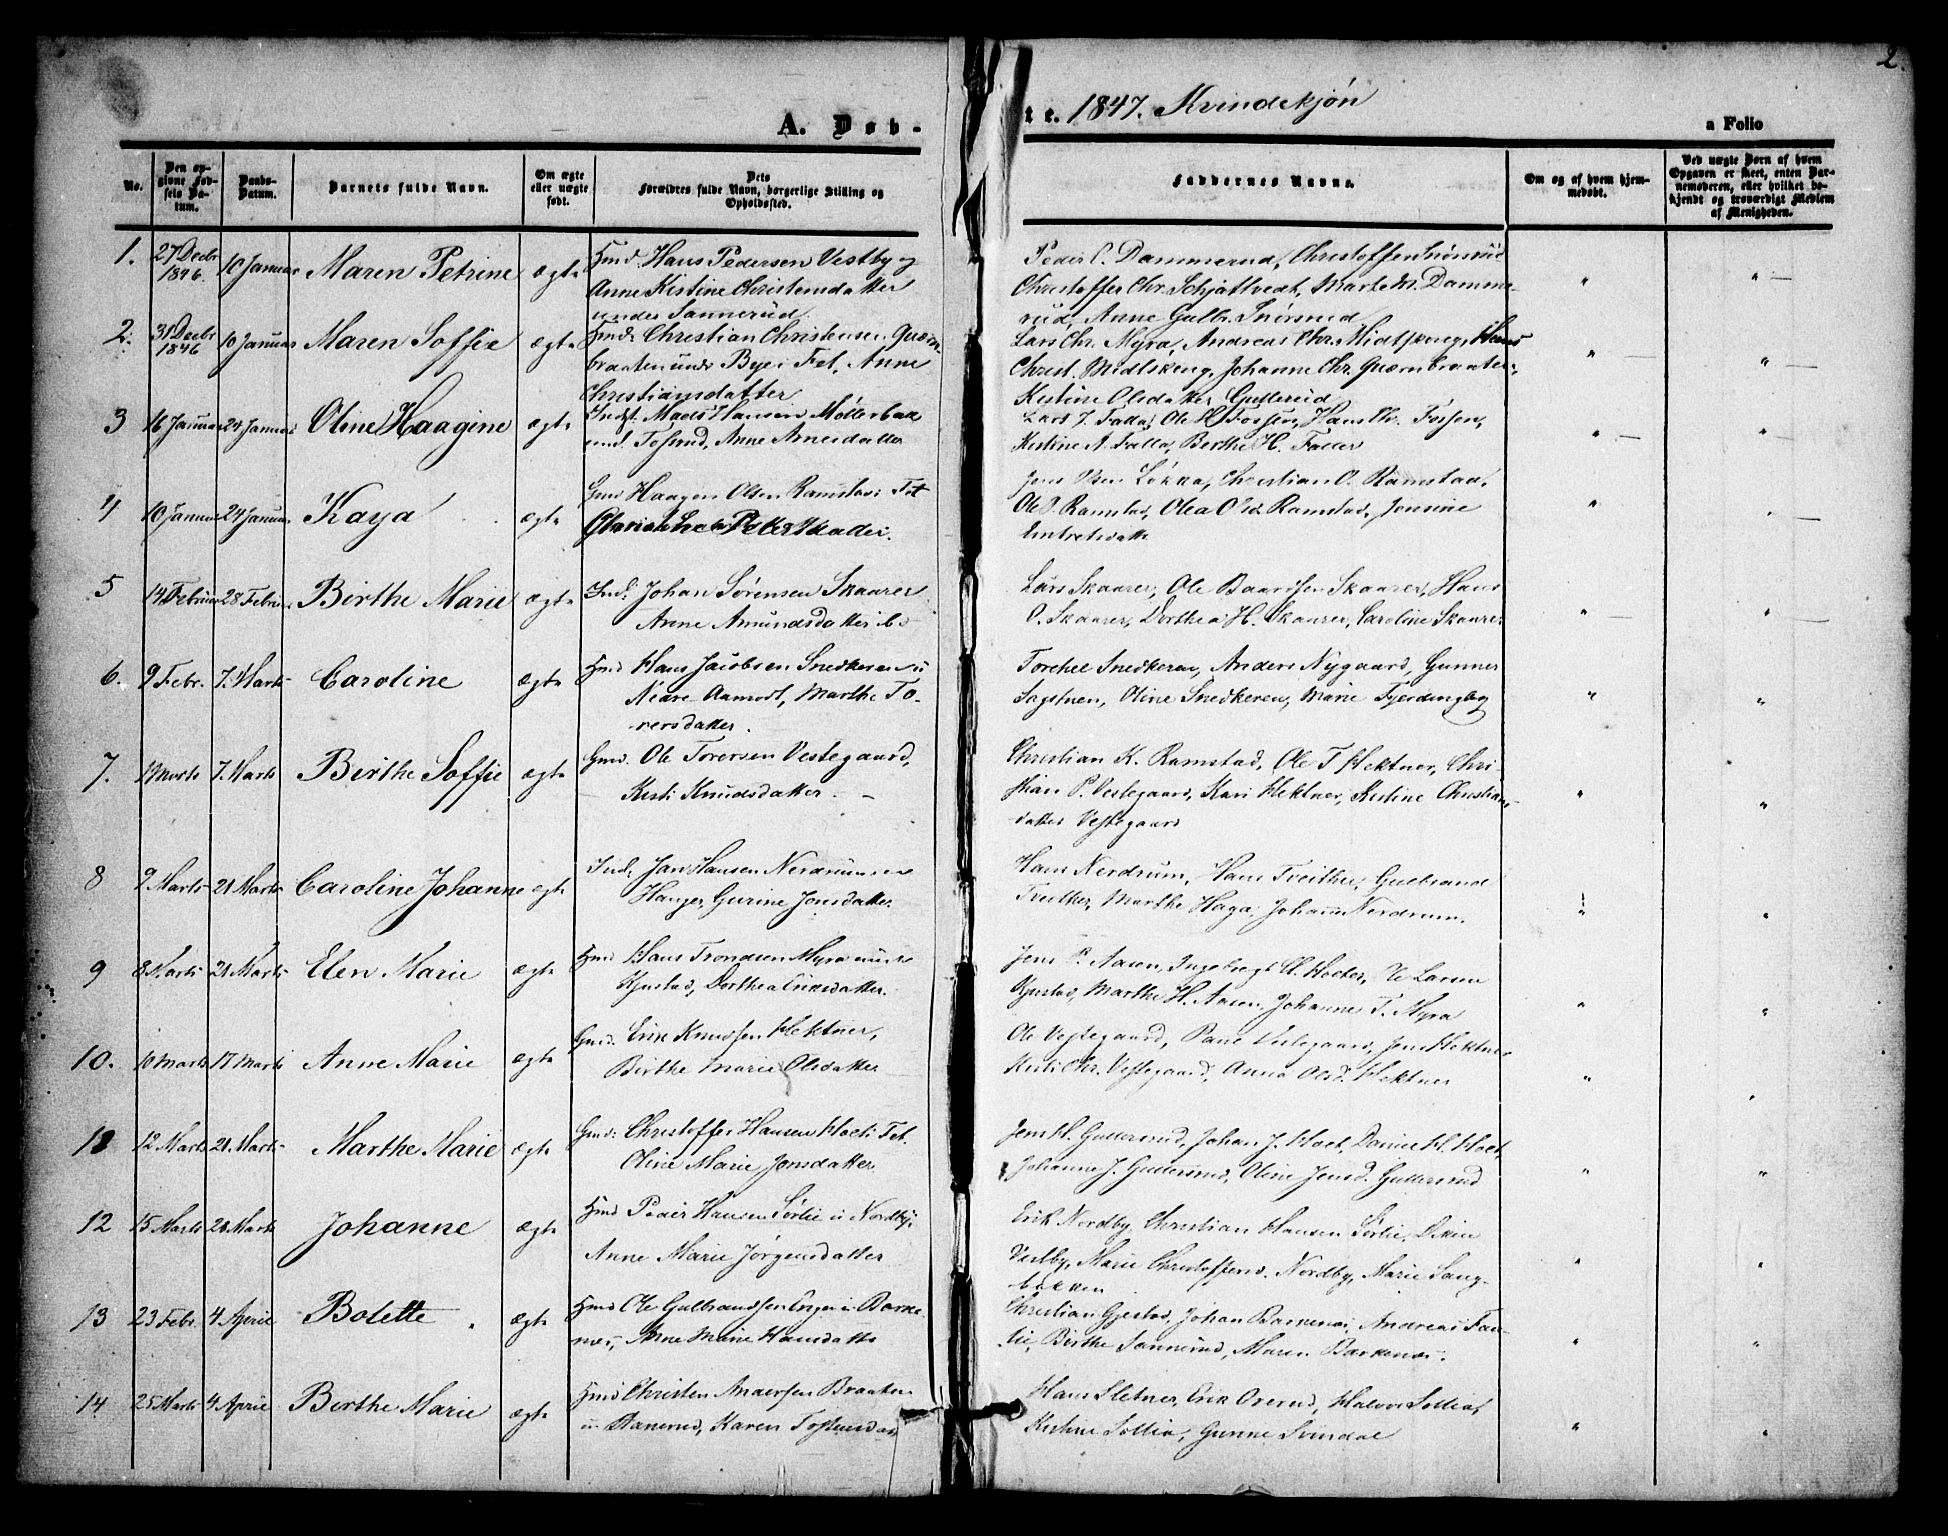 2.
A. Døb-
te. 1847. Kvindekjøn
a Folio
No.
Den op-
givne Fød-
sels Da-
tum.
Daabs-
Datum.
Barnets fulde Navn.
Om ægte
eller uægte
født.
Dets
Forældres fulde Navn, borgerlige Stilling og
Opholdssted.
Faddernes Navne.
Om og af hvem hjem-
medøbt.
Ved uægte Børn af hvem
Opgaven er skeet, enten Bar-
nemoderen, eller hvilket be-
kjendt og troværdigt Medlem
af Menigheden.
1. 27 Decbr 1846. 10 Januar Maren Petrine ægte Hmd. Hans Pedersen Vestby og
Anne Kistine Christensdatter
under Sannerud.
Peder C. Dammerud, Christoffer Snörsrud
Christoffer Chr. Schjattvedt, Marte M. Damme-
rud, Anne Gulb. Snörsrud
2. 31 Decbr 1846 10 Januar Maren Soffie ægte Hmd. Christian Christensen Quern-
braaten und Bye i Fet, Anne
Christiansdatter
Lars Chr. Myra, Andreas Chr. Midtskeng, Hans
Christ. Midtskeng, Johanne Chr. Quernbraaten,
Kistine Olsdatter Gullerud
3 16 Januar 24 Januar Oline Haagine ægte Indst. Mads Hansen Møllerbak
und. Tosrud, Anne Arnesdatter
Lars J. Falla, Ole H. Fossen, Hans Chr. Fossen,
Kistine A. Falla, Berthe H. Falla
4 10 Januar 24 Januar Kaya ægte Gmd Haagen Olsen Ramstad i Fet
Petersdatter.
Jens Olsen Løkka, Christian O. Ramstad,
Ole O. Ramstad, Olea Olsd. Ramstad, Jensine
5 14 Februar 28 Februar Birthe Marie ægte Ind. Johan Sørensen Skaarer
Anne Amundsdatter
Lars Skaarer, Ole Baardsen Skaarer, Hans
O. Skaarer, Dorthea H. Skaarer, Caroline Skaarer
6. 9 Febr. 7. Marts Caroline ægte Hmd Hans Jacobsen Snedkeren u
Aamodt, Marthe To-
rersdatter.
Torchel Snedkeren, Anders Nygaard, Gunner
Sagstuen, Oline Snedkeren, Marie Fjerdingby
7. 1 Marts 7. Marts Birthe Soffie ægte Gmd. Ole Torersen Vestegaard,
Kisti Knudsdatter.
Christian K. Ramstad, Ole T Hektner, Chri-
stian P. Vestegaard, Kari Hektner, Kistine Christians-
datter Vestegaard
8 9 Marts 21 Marts Caroline Johanne ægte Ind. Jan Hansen Nerdrum
Hanger, Gurine Jensdatter.
Hans Nerdrum, Hans Tveither, Gulbrand
Tveither, Marthe Haga, Johanne Nerdrum.
9 8 Marts 21 Marts Elen Marie ægte Hmd Hans Trondsen Myra under
Kjustad, Dorthea Eriksdatter.
Jens P. Aasen, Ingebregt H. Ole Larsen
Kjustad, Marthe H. Aasen, Johanne T. Myra
10. 10 Marts 17 Marts Anne Marie ægte Gmd. Erik Knudsen Hektner,
Birthe Marie Olsdatter
Ole Vestegaard, Vestegaard, Jens Hektner
Kisti Chr. Vestegaard, Anna Olsd. Hektner
11 12 Marts 21 Marts Marthe Marie ægte Gmd. Christoffer Hansen Hoel i Fet.
Oline Marie Jensdatter
Jens H. Guttersrud, Johan J. Hoel, Danine H. Hoel,
Johanne J. Guttersrud, Oline Jensd. Guttersrud
12 15 Marts 28 Marts Johanne ægte Hmd Peder Hansen Sørlie u Nordby,
Anne Marie Jørgensdatter
Erik Nordby, Christian Hansen Sørlie,
Vestby, Marie Christoffersd. Nordby, Marie Sang-
bakken
13 23 Febr. 4 Aprill Bolette ægte Hmd Ole Gulbrandsen Enger u Barke-
næs, Anne Marie Hansdatter
Christian Gjestad, Johan Barkenæs, Andreas
Birthe Sannerud, Maren Barkenæs.
14 25 Marts 4 Aprill Birthe Marie ægte Hmd Christen Andersen Braaten
u Karen
Hans Sletner, Erik Ørerud, Halvor Sollia,
Kistine Sollia, Gunne Svindal